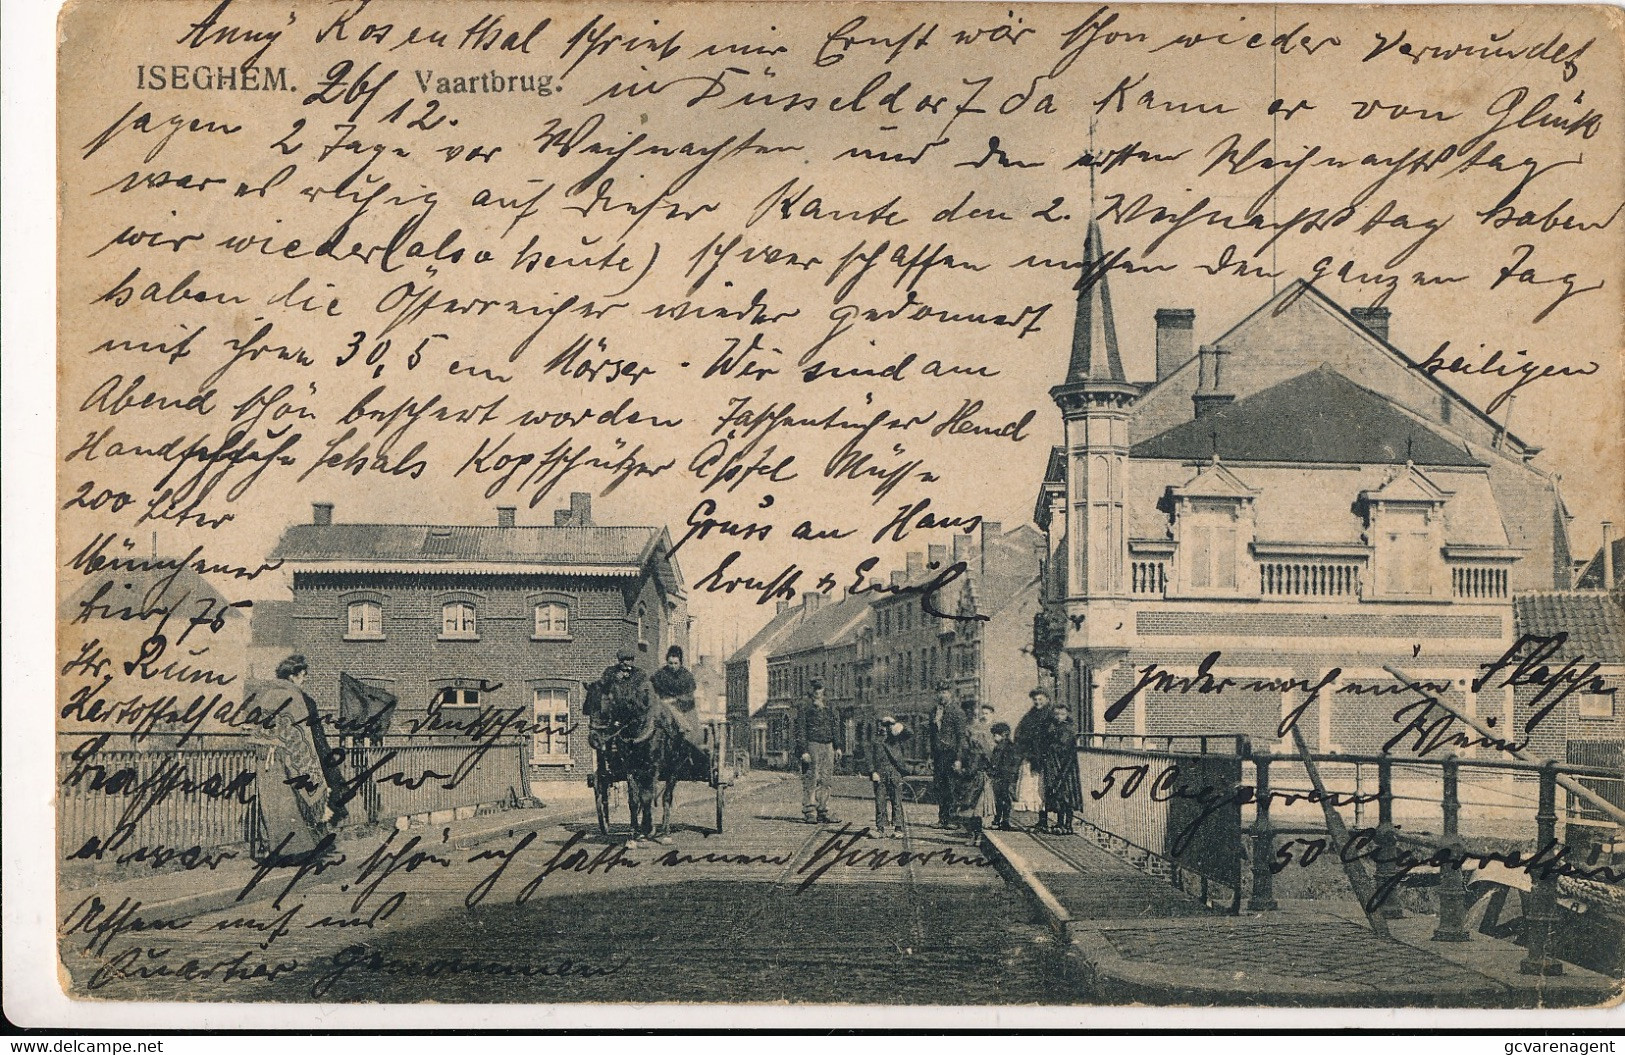 Anny Rosenthal schrieb mir Ernst wär schon wieder verwundet
ISEGHEM. Vaartbrug.
26/12.
in Düsseldorf da kann er von Glück
sagen 2 Tage vor Weihnachten und den ersten Weihnachtstag
war es ruhig auf dieser Kante den 2. Weihnachtstag haben
wir wieder (also heute) schwer schaffen müssen den ganzen Tag
haben die Österreicher wieder gedonnert
mit ihren 30,5 cm Mörser. Wir sind am
heiligen
Abend schön beschert worden Taschentücher Hemd
Handschuhe Schals Kopfschützer Äpfel Nüsse
200 Liter
Münchener
Bier 75
Ltr. Rum
Kartoffelsalat mit Deutschem
u s w
Gruss an Hans
Ernst & Emil
jeder noch eine Flasche
Wein
50 Cigarren
50 Cigarretten
es war sehr schön ich hatte einen schweren
Affen mit ins
Quartier genommen
gcvarenagent
www.delcampe.net